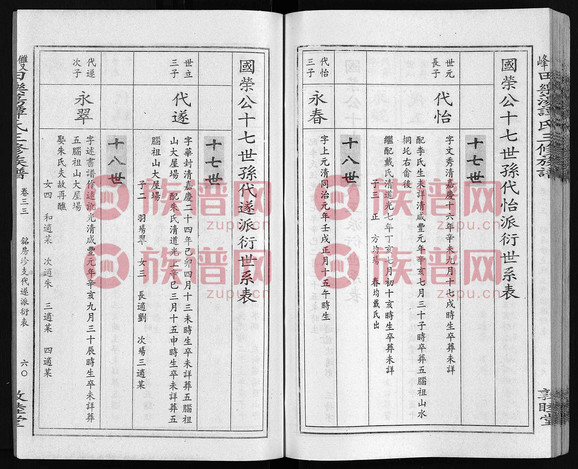 國榮公十七世孫代怡派衍世系表
十七世
世元
長子
代怡
字文秀清嘉慶十六年辛未九月十七戌時生卒葬未詳
配李氏生未詳清咸豐元年辛亥七月三十子時卒葬五腦祖山水
桐圫右畲後
繼配戴氏清道光七年丁亥七月初十亥時生卒葬未詳
子三 正 方 春均戴氏出
十八世
代怡
三子
永春
字上元清同治元年壬戌正月十五午時生
國榮公十七世孫代遂派衍世系表
十七世
世立
三子
代遂
字華封清嘉慶二十四年己卯四月十三未時生卒未詳葬五腦祖
山大屋場 配朱氏清道光元年辛巳三月十五申時生卒未詳葬
五腦祖山大屋場
子二 羽 易翠 女三 長適劉 次殤 三適某
十八世
代遂
次子
永翠
字述書譜作遠謨清咸豐元年辛亥九月三十辰時生卒未詳葬
五腦祖山大屋場
娶朱氏夫故再醮
女四 和適某 次適朱 三適某 四適某
卷三三
銘房珍支代遂派衍表
六〇
敦睦堂
敦睦堂
族普网
zupu.cn
族普网
zupu.cn